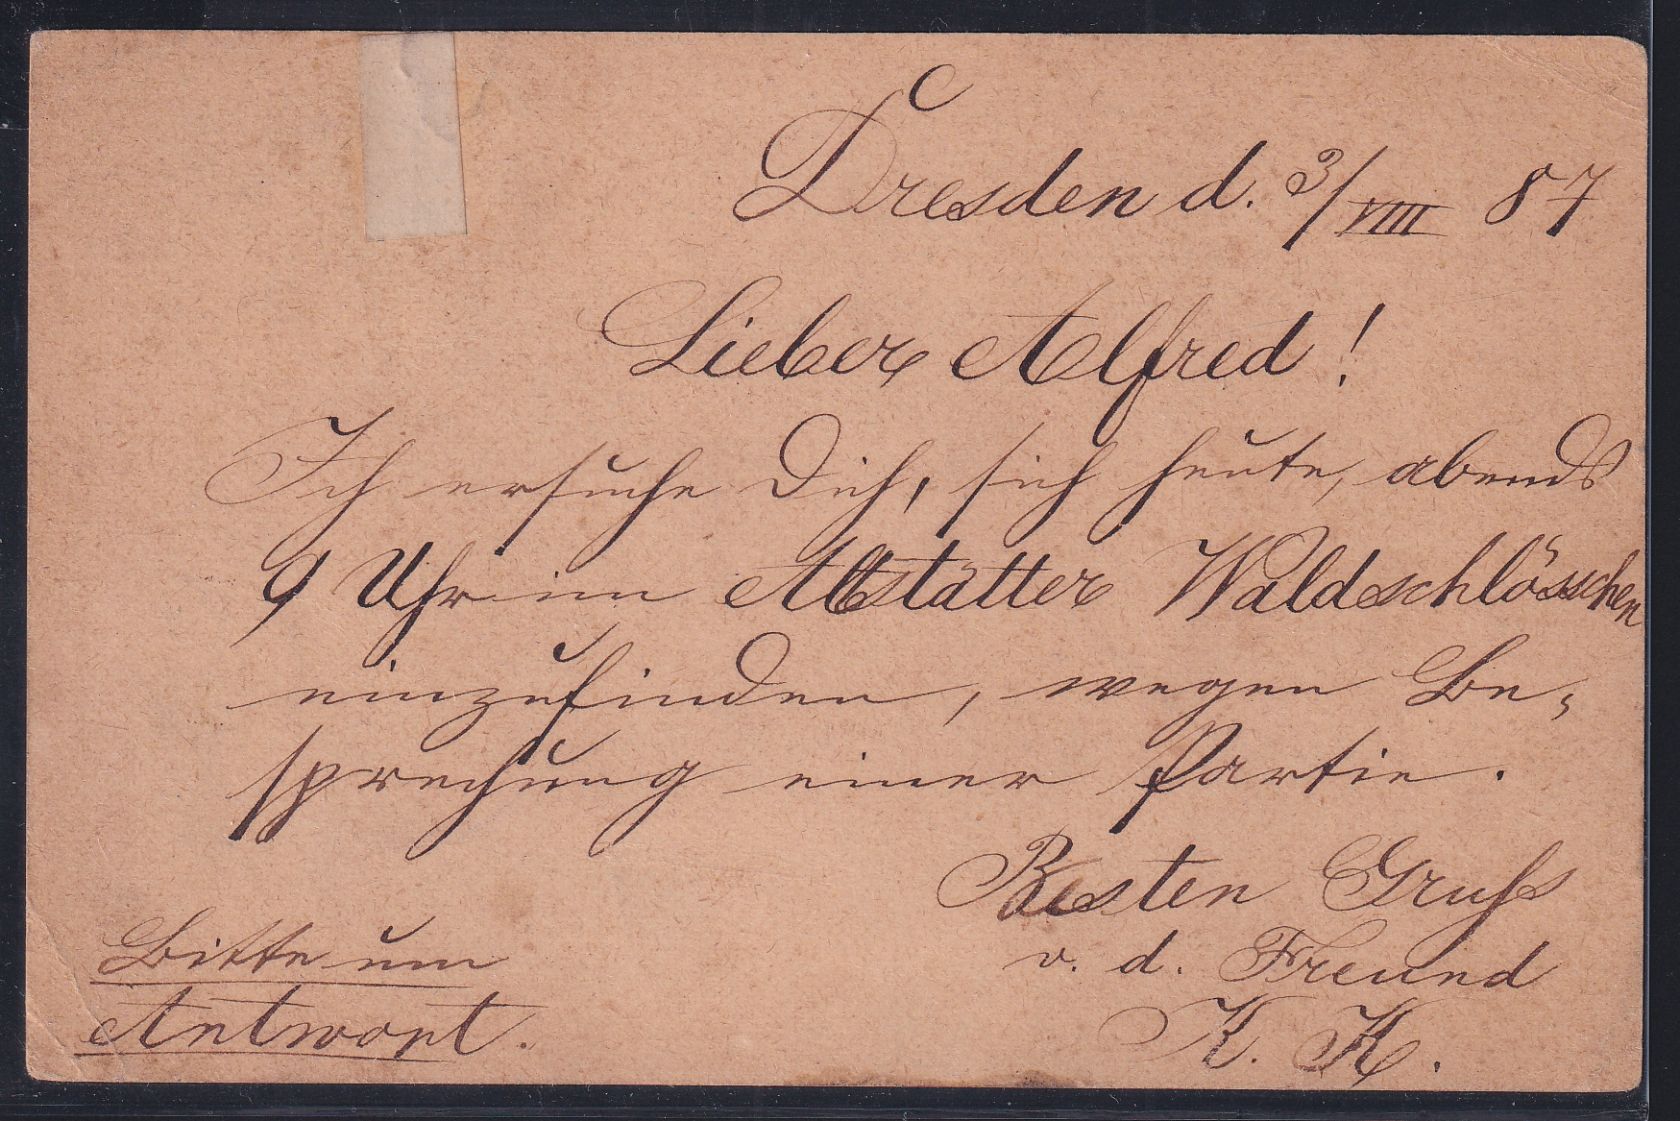 Dresden d. 3/VIII 87
Lieber Alfred!
Ich ersuche Dich, sich heute, abends
9 Uhr im Altstätter Waldschlösschen
einzufinden, wegen Be-
sprechung einer Partie.
Besten Gruß
v. d. Freund
K. K.
Bitte um
Antwort.